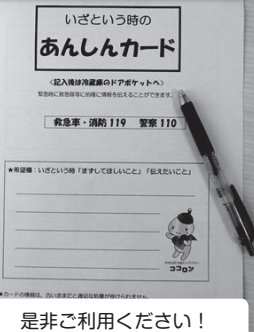 いざという時の
あんしんカード
<記入後は冷蔵庫のドアポケットへ>
緊急時に救急隊等に的確に情報を伝えることができます。
救急車・消防 119 警察 110
★希望欄:いざという時「まずしてほしいこと」「伝えたいこと」
ココロン
★カードの情報は、古いままだと適切な処置が受けられません。
是非ご利用ください!